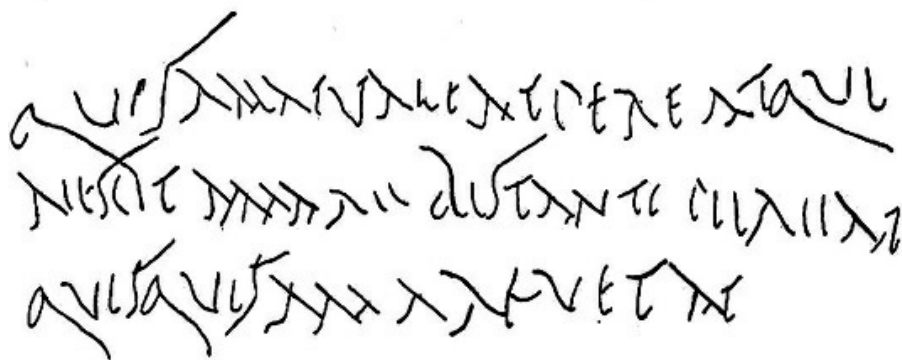 QUIS AMAT VALEAT PEREAT QUI
NESCIT AMARE BIS TANTI PEREAT
QUISQUIS AMARE VETAT